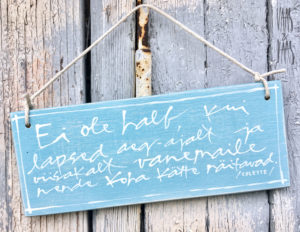 Ei ole halb kui
lapsed aeg-ajalt ja
viisakalt vanemaile
nende koha kätte näitavad.
/COLETTE/